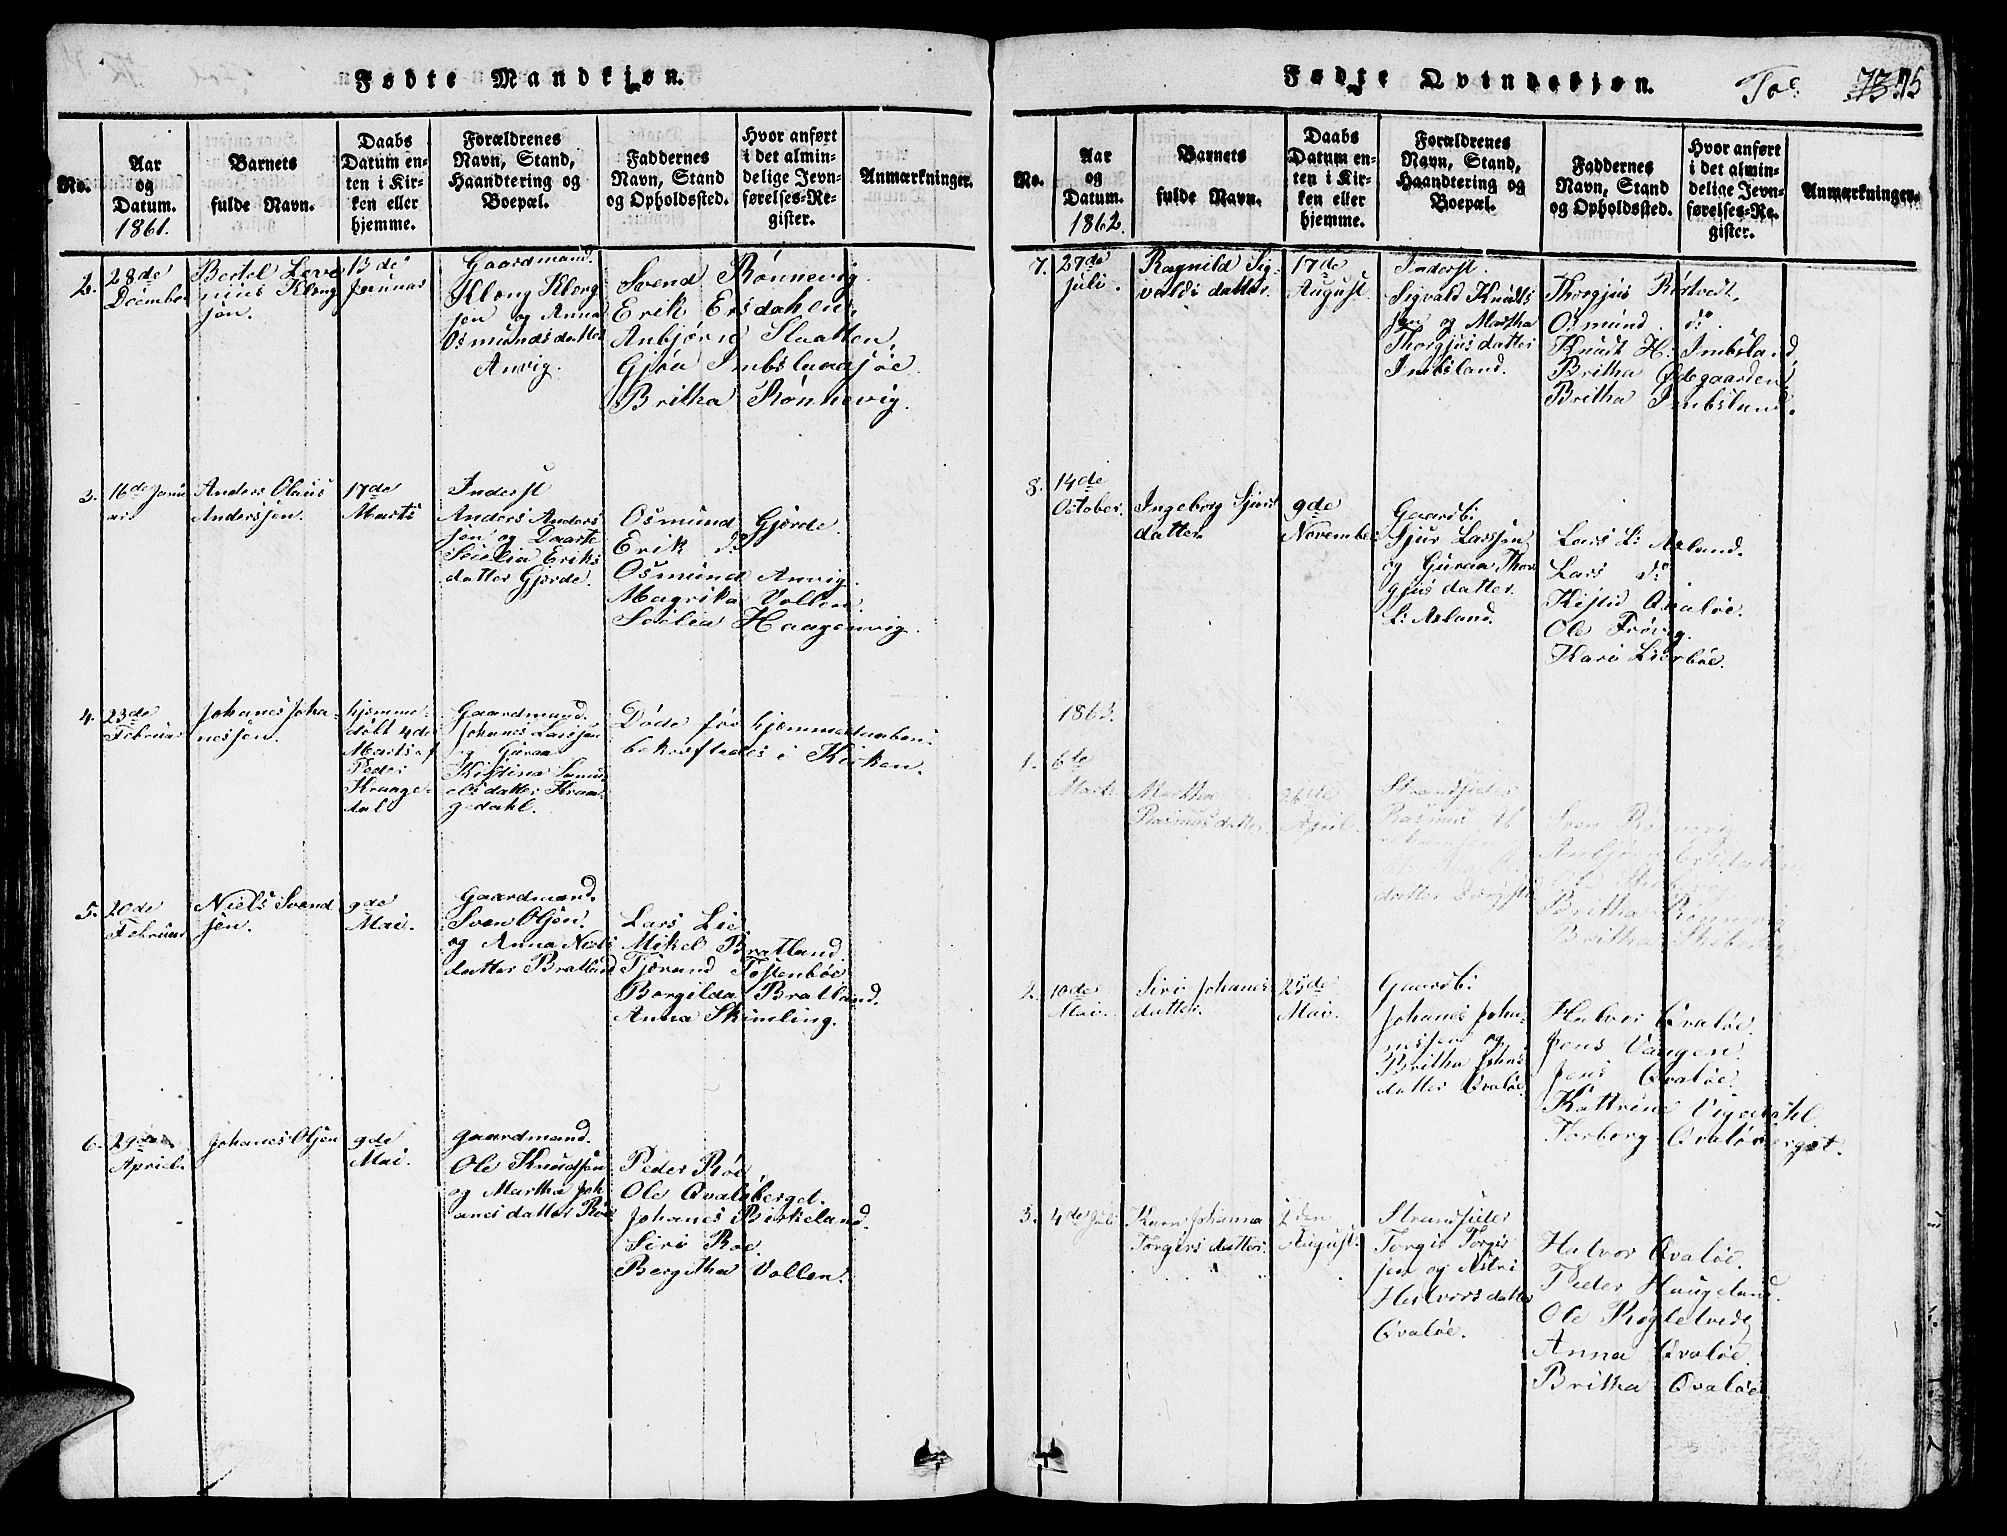 Fødte Mandkjøn.
No.
Aar
og
Datum.
1861.
Barnets
fulde Navn.
Daabs
Datum en-
ten i Kir-
ken eller
hjemme.
Forældrenes
Navn, Stand,
Haandtering og
Boepæl.
Faddernes
Navn, Stand
og Opholdssted.
Hvor anført
i det almin-
delige Jevn-
førelses-Re-
gister.
Anmærkninger.
2.
28de
December
Bertel
nius Klong
sen.
13de
Januar
Gaardmand.
Klong Klong
sen og Anna
Osmundsdatter
Anvig.
Svend Rønnevig.
Erik Ersdahlie,
Anbjørn Slaatten,
Gjøa Imbslandsjøe.
Britha Rønnevig.
3.
16de Janu
ar.
Anders Olaus
Anderssen.
17de
Marts
Inderst
Anders Anders
sen og Daarte
Sicelia Eriks
datter Gjerde.
Osmund Gjerde.
Erik do
Osmund Anvig.
Magrika Vollen.
Sicelia Haagenvig.
4.
23de
Februar
Johanes Joha-
nessen.
hjemme-
døbt 4de
Marts af
Peder
Krange-
dal
Gaardmand.
Johanes Larssen
og Guraa
Kistina Samu
elsdatter Kran-
gedahl.
Døde før hjemmedaaben
bekræftedes i Kirken.
5.
20de
Februar
Niels Svend
sen.
9de
Mai.
Gaardmand.
Sven Olsen.
og Anna Niels
datter Bratland
Lars Lie
Mikel Bratland.
Tjerand Tostenbøe
Borgilda Bratland.
Anna Skimling.
6.
29de
April.
Johanes Olsen
9de
Mai.
Gaardmand.
Ole Knudsen
og Martha Joh
anesdatter Røe
Peder Røe
Ole Qvaløberget.
Johanes Birkeland.
Siri Roe.
Bergitha Vollen.
Fødte Qvindekjøn.
73 75
No.
Aar
og
Datum.
1862.
Barnets
fulde Navn.
Daabs
Datum en-
ten i Kir-
ken eller
hjemme.
Forældrenes
Navn, Stand,
Haandtering og
Boepæl.
Faddernes
Navn, Stand
og Opholdssted.
Hvor anført
i det almin-
delige Jevn-
førelses-Re-
gister.
Anmærkninger.
7.
27de
Juli.
Ragnild Sig-
valds datter.
17de
August.
Inderst.
Sigvald Knuts
sen og Martha
Thorgjusdatter
Imbsland.
Thorgjus Røstvedt,
Osmund do.
Knudt H. Imbsland,
Britha Ødegaarden,
Britha Imbsland.
8.
14de
October.
Ingeborg Sjurs
datter.
9de
November
Gaardb:
Sjur Larssen
og Guraa Thor
gjusdatter.
L: Asland.
Lars L: Asland.
Lars do
Kistid Qvaløe.
Ole Frøvig.
Kari Lierbøe.
1863.
1.
6te
Marts
Martha
Rasmusdatter
26de
April.
Strandsider
Rasmus
datter
Sven Rønnevig
Anbjørn
Britha Rønnevig
Britha
2.
10de
Mai.
Siri Johanes
datter.
25de
Mai.
Gaardb:
Johanes Joha-
nessen og
Britha Johns
datter Qvaløe.
Halvor Qvaløe.
Jens Vangen.
Jens Qvaløe.
Kattrine Vigedahl.
Torborg Qvaløberget.
3.
4de Juli
Karn Johanna
Torgers datter.
2den
August.
Strandsider
Torger Torger
sen og Astri
Halvorsdatter
Qvaløe.
Halvor Qvaløe.
Peder Haugeland.
Ole Røgletvedt
Anna Qvaløe.
Britha Qvaløe.